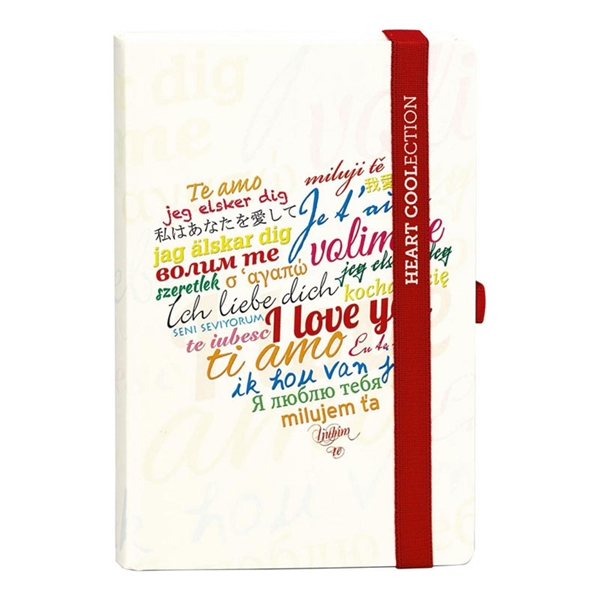 Te amo
miluji tě
jeg elsker dig
我愛
私はあなたを愛して
Je t'a
jag älskar dig
volim e
волим те
σ ‘αγαπώ
jeg els eg
szeretlek
Ich liebe dich
kocha cię
SENI SEVIYORUM
I love y
te iubesc
ti amo
Eu ta
ik hou van j
Я люблю тебя
milujem ťa
Ljubim
te
HEART COOLECTION